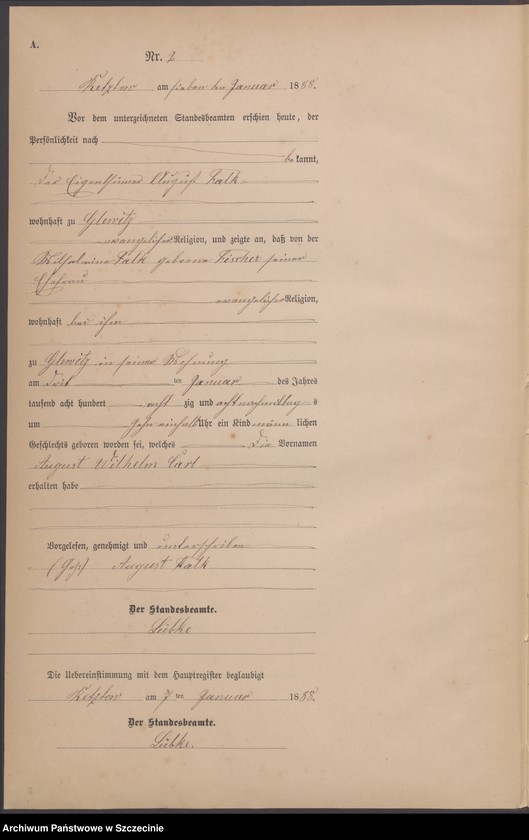 A.
Nr. 2
am sieben ten Januar 1888.
Vor dem unterzeichneten Standesbeamten erschien heute, der
Persönlichkeit nach
be kannt,
der Eigenthümer August Falk
wohnhaft zu Glewitz
evangelischer Religion, und zeigte an, daß von der
Wilhelmine Falk geborene Fischer seiner
Ehefrau
evangelischer Religion,
wohnhaft bei ihm
zu Glewitz in seiner Wohnung
am ten Januar des Jahres
tausend acht hundert acht zig und acht nachmittag s
um zehn einhalb Uhr ein Kind männ lichen
Geschlechts geboren worden sei, welches die Vornamen
August Wilhelm Carl
erhalten habe
Vorgelesen, genehmigt und unterschrieben
August Falk
Der Standesbeamte.
Lübke
Die Uebereinstimmung mit dem Hauptregister beglaubigt
am 7 ten Januar 1888.
Der Standesbeamte.
Lübke.
Archiwum Państwowe w Szczecinie